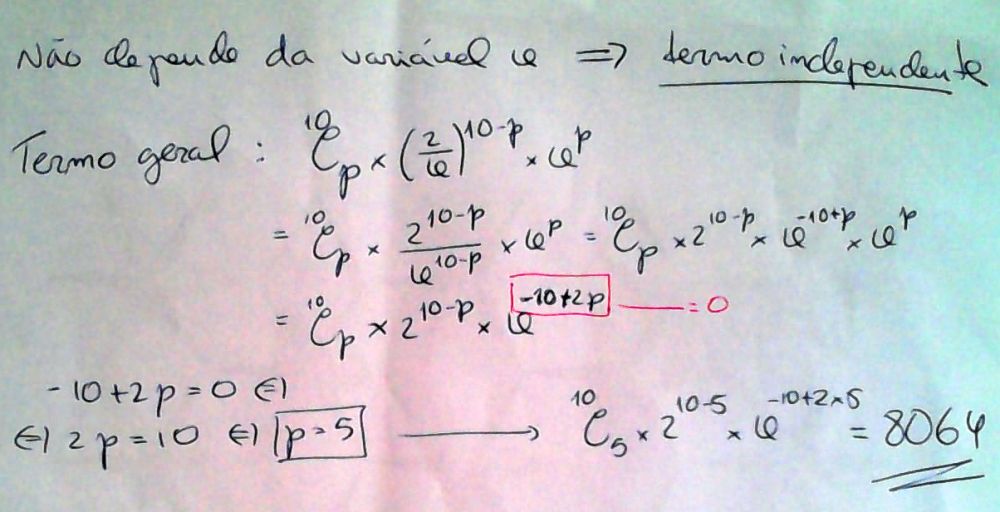 Não depende da variável x ⇒ termo independente
Termo geral : ¹⁰C_p × (2/x)^(10-p) × x^p
= ¹⁰C_p × 2^(10-p)/x^(10-p) × x^p = ¹⁰C_p × 2^(10-p) × x^(-10+p) × x^p
= ¹⁰C_p × 2^(10-p) × x^(-10+2p) = 0
-10+2p = 0 ⇔
⇔ 2p = 10 ⇔ p = 5 → ¹⁰C₅ × 2^(10-5) × x^(-10+2×5) = 8064